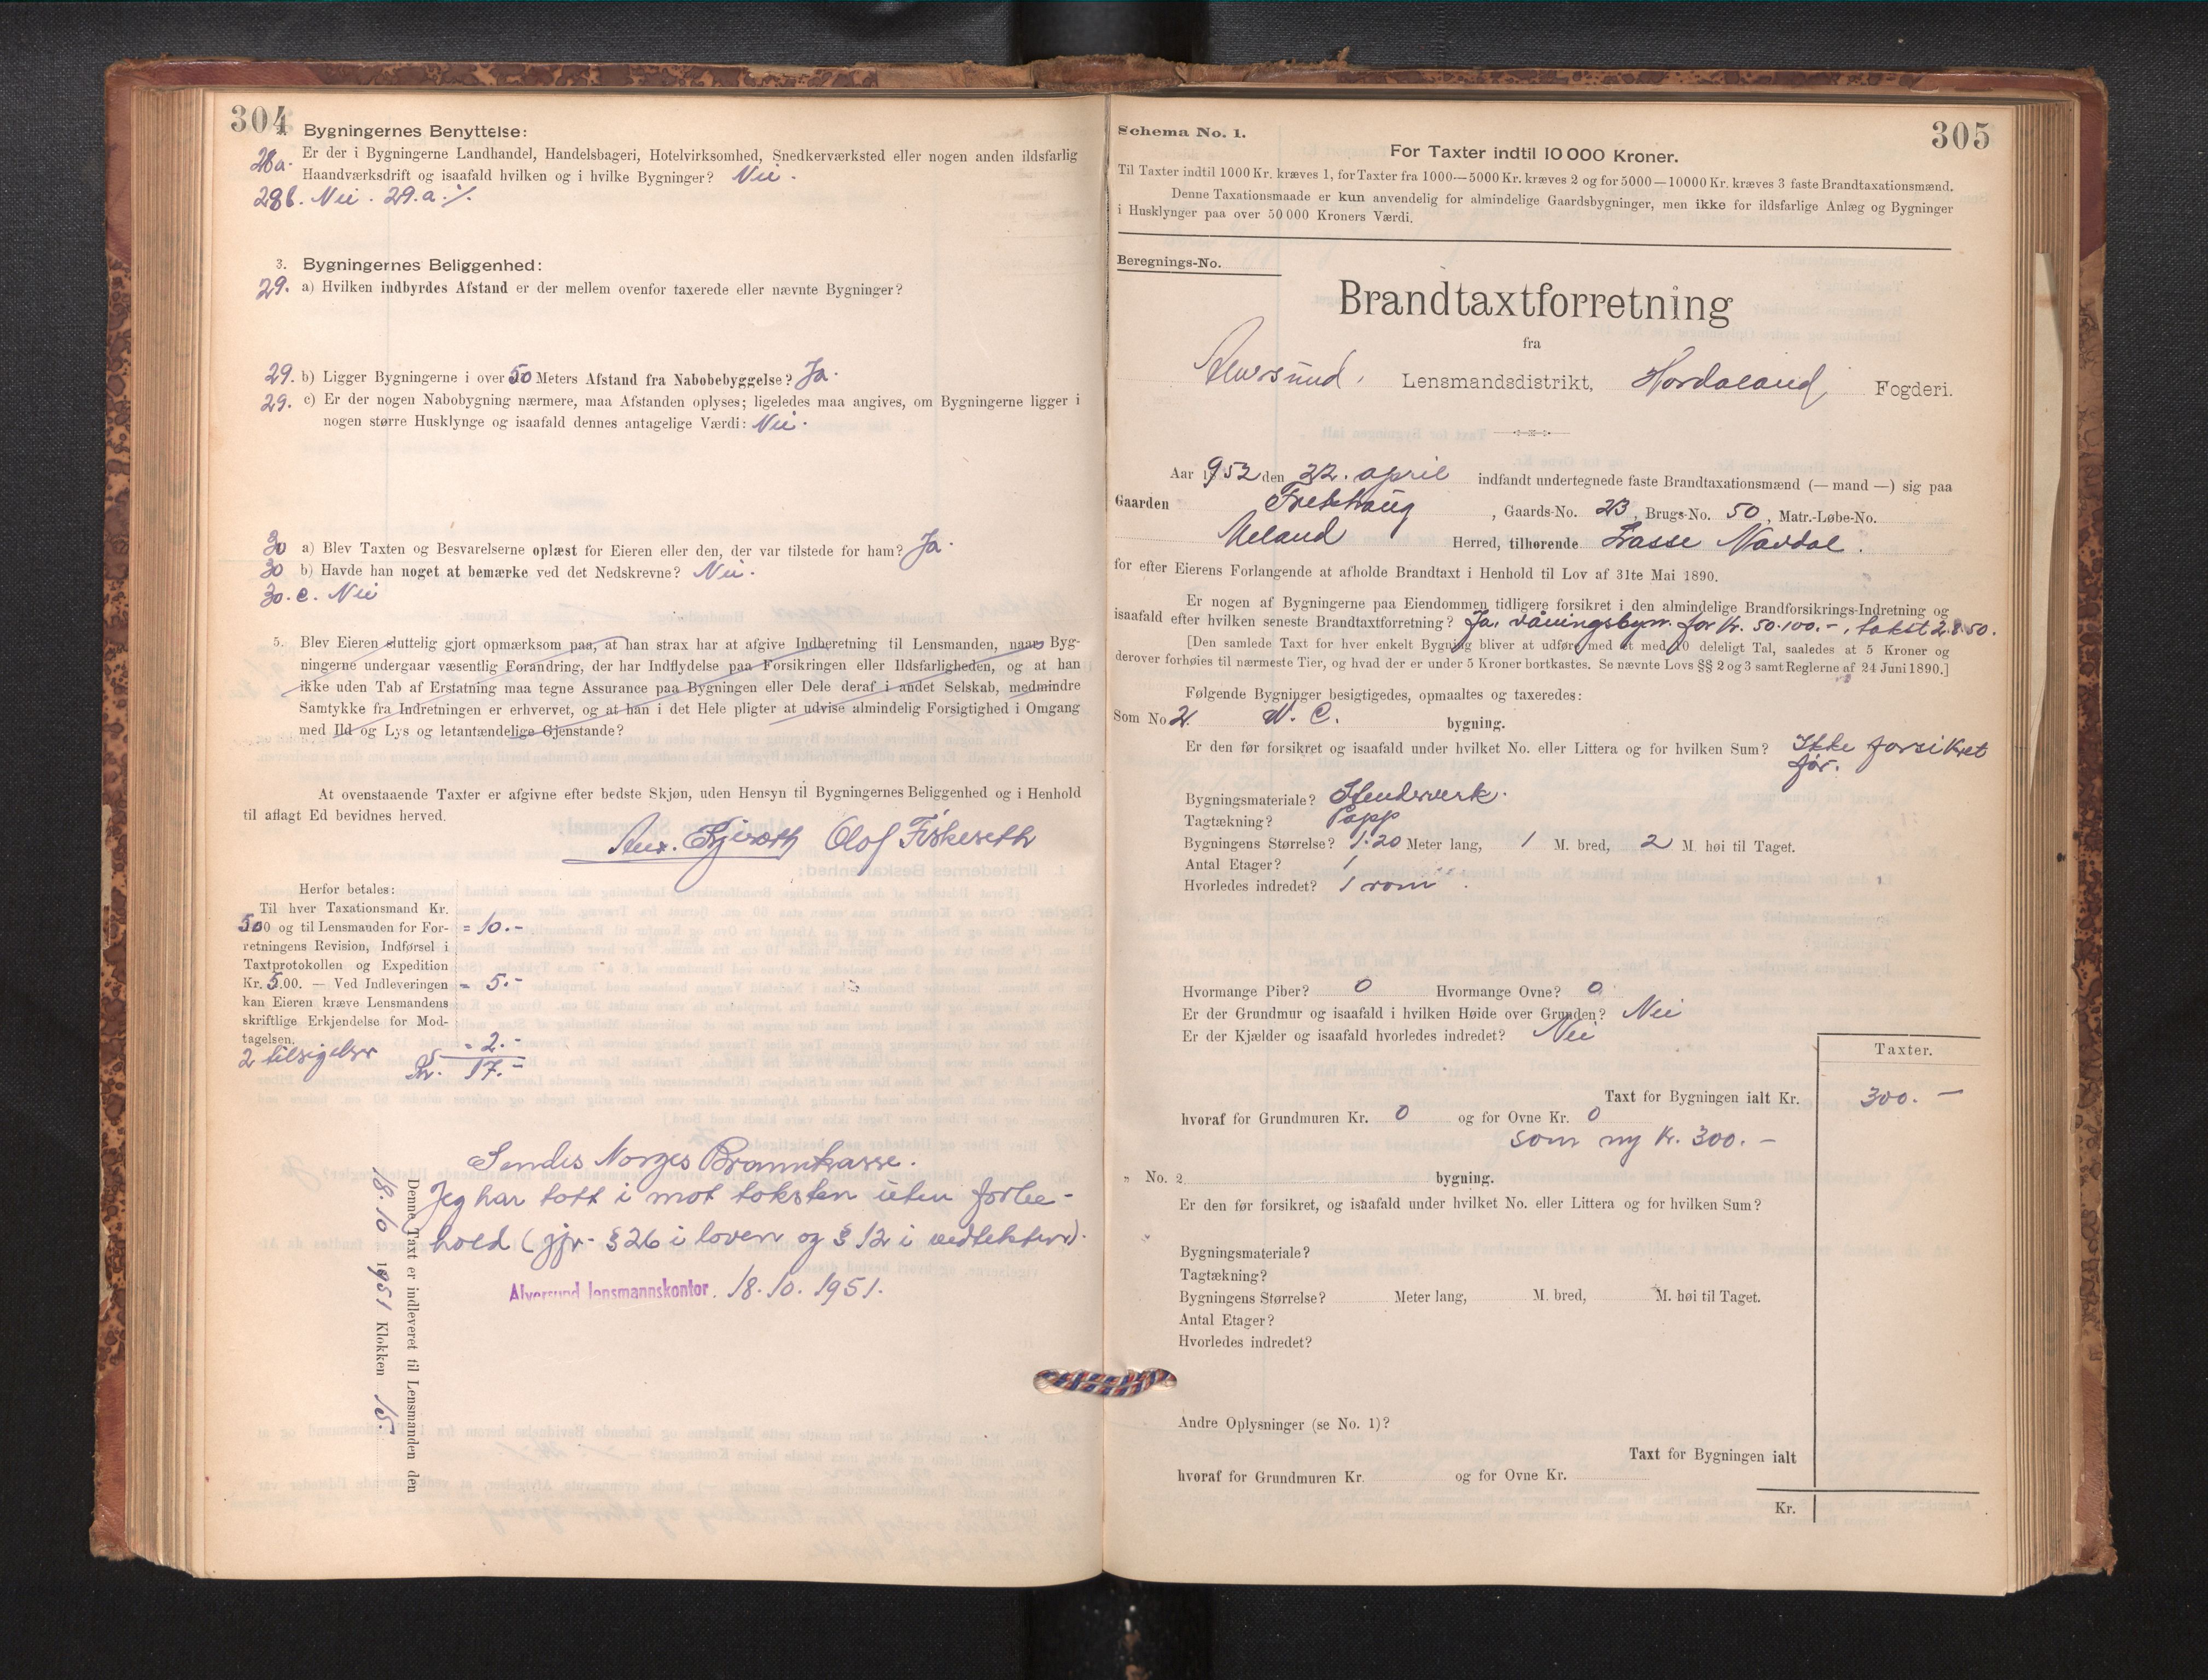 304
Bygningernes Benyttelse:
28a. Er der i Bygningerne Landhandel, Handelsbageri, Hotelvirksomhed, Snedkerværksted eller nogen anden ildsfarlig
Haandværksdrift og isaafald hvilken og i hvilke Bygninger? Nei.
28b. Nei. 29.a. ./.
3. Bygningernes Beliggenhed:
29. a) Hvilken indbyrdes Afstand er der mellem ovenfor taxerede eller nævnte Bygninger?
29. b) Ligger Bygningerne i over 50 Meters Afstand fra Nabobebyggelse? Ja.
29. c) Er der nogen Nabobygning nærmere, maa Afstanden oplyses; ligeledes maa angives, om Bygningerne ligger i
nogen større Husklynge og isaafald dennes antagelige Værdi: Nei.
30 a) Blev Taxten og Besvarelserne oplæst for Eieren eller den, der var tilstede for ham? Ja.
30 b) Havde han noget at bemærke ved det Nedskrevne? Nei.
30. c. Nei
5. Blev Eieren sluttelig gjort opmærksom paa, at han strax har at afgive Indberetning til Lensmanden, naar Byg-
ningerne undergaar væsentlig Forandring, der har Indflydelse paa Forsikringen eller Ildsfarligheden, og at han
ikke uden Tab af Erstatning maa tegne Assurance paa Bygningen eller Dele deraf i andet Selskab, medmindre
Samtykke fra Indretningen er erhvervet, og at han i det Hele pligter at udvise almindelig Forsigtighed i Omgang
med Ild og Lys og letantændelige Gjenstande?
At ovenstaaende Taxter er afgivne efter bedste Skjøn, uden Hensyn til Bygningernes Beliggenhed og i Henhold
til aflagt Ed bevidnes herved.
Olof Fiskeseth
Herfor betales:
Til hver Taxationsmand Kr.
5.00 og til Lensmanden for For- = 10.-
retningens Revision, Indførsel i
Taxtprotokollen og Expedition
Kr. 5.00. — Ved Indleveringen = 5.-
kan Eieren kræve Lensmandens
skriftlige Erkjendelse for Mod-
tagelsen.
2 tilsigelser - 2.-
Kr. 17.-
Sendes Norges Brannkasse.
Jeg har tatt i mot taksten uten forbe-
hold (jfr. § 26 i loven og § 12 i vedtekter).
Alversund lensmannskontor. 18.10.1951.
Denne Taxt er indleveret til Lensmanden den
18.10 1951 Klokken 15.
Schema No. 1.
305
For Taxter indtil 10 000 Kroner.
Til Taxter indtil 1000 Kr. kræves 1, for Taxter fra 1000—5000 Kr. kræves 2 og for 5000—10000 Kr. kræves 3 faste Brandtaxationsmænd.
Denne Taxationsmaade er kun anvendelig for almindelige Gaardsbygninger, men ikke for ildsfarlige Anlæg og Bygninger
i Husklynger paa over 50 000 Kroners Værdi.
Beregnings-No.
Brandtaxtforretning
fra
Alversund, Lensmandsdistrikt, Hordaland Fogderi.
Aar 1952 den 22. april indfandt undertegnede faste Brandtaxationsmænd (— mand —) sig paa
Gaarden Frekhaug, Gaards-No. 23, Brugs-No. 50, Matr.-Løbe-No.
Meland Herred, tilhørende Lasse Navdal.
for efter Eierens Forlangende at afholde Brandtaxt i Henhold til Lov af 31te Mai 1890.
Er nogen af Bygningerne paa Eiendommen tidligere forsikret i den almindelige Brandforsikrings-Indretning og
isaafald efter hvilken seneste Brandtaxtforretning? Ja, våningsbygn. for Kr. 50.100.-, takst 2.8.50.
[Den samlede Taxt for hver enkelt Bygning bliver at udføre med et med 10 deleligt Tal, saaledes at 5 Kroner og
derover forhøies til nærmeste Tier, og hvad der er under 5 Kroner bortkastes. Se nævnte Lovs §§ 2 og 3 samt Reglerne af 24 Juni 1890.]
Følgende Bygninger besigtigedes, opmaaltes og taxeredes:
Som No 2. W. C. bygning.
Er den før forsikret og isaafald under hvilket No. eller Littera og for hvilken Sum? Ikke forsikret
før.
Bygningsmateriale? Stenderverk.
Tagtækning? Papp
Bygningens Størrelse? 1.20 Meter lang, 1 M. bred, 2 M. høi til Taget.
Antal Etager? 1
Hvorledes indredet? 1 rom.
Hvormange Piber? 0 Hvormange Ovne? 0
Er der Grundmur og isaafald i hvilken Høide over Grunden? Nei
Er der Kjælder og isaafald hvorledes indredet? Nei
Taxter.
Taxt for Bygningen ialt Kr. 300.-
hvoraf for Grundmuren Kr. 0 og for Ovne Kr. 0
som ny Kr. 300.-
„ No. 2 bygning.
Er den før forsikret, og isaafald under hvilket No. eller Littera og for hvilken Sum?
Bygningsmateriale?
Tagtækning?
Bygningens Størrelse? Meter lang, M. bred, M. høi til Taget.
Antal Etager?
Hvorledes indredet?
Andre Oplysninger (se No. 1)?
Taxt for Bygningen ialt
hvoraf for Grundmuren Kr. og for Ovne Kr.
Kr.